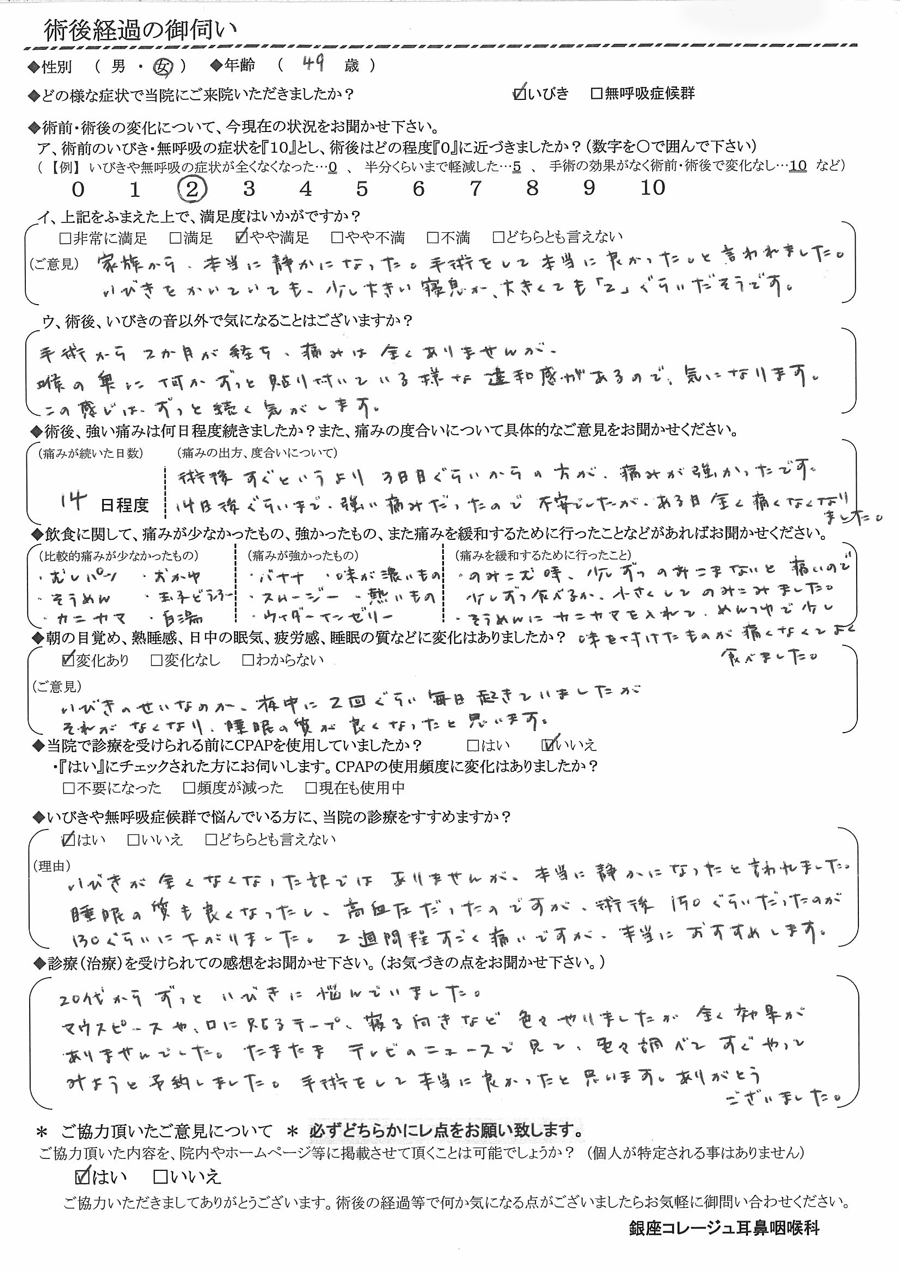 術後経過の御伺い
◆性別 （ 男 ・ 女 ） ◆年齢 （ 49 歳 ）
◆どの様な症状で当院にご来院いただきましたか？ ☑いびき □無呼吸症候群
◆術前・術後の変化について、今現在の状況をお聞かせ下さい。
ア、術前のいびき・無呼吸の症状を『10』とし、術後はどの程度『0』に近づきましたか？（数字を〇で囲んで下さい）
（【例】 いびきや無呼吸の症状が全くなくなった…0 、 半分くらいまで軽減した…5 、 手術の効果がなく術前・術後で変化なし…10 など）
0 1 2 3 4 5 6 7 8 9 10
イ、上記をふまえた上で、満足度はいかがですか？
□非常に満足 □満足 ☑やや満足 □やや不満 □不満 □どちらとも言えない
（ご意見） 家族から、本当に静かになった。手術をして本当に良かった。と言われました。
いびきをかいていても、少し大きい寝息か、大きくても「2」ぐらいだそうです。
ウ、術後、いびきの音以外で気になることはございますか？
手術から2か月が経ち、痛みは全くありませんが、
喉の奥に何かずっと貼り付いている様な違和感があるので、気になります。
この感じは、ずっと続く気がします。
◆術後、強い痛みは何日程度続きましたか？また、痛みの度合いについて具体的なご意見をお聞かせください。
（痛みが続いた日数） （痛みの出方、度合いについて）
術後すぐというより3日目ぐらいからの方が、痛みが強かったです。
14 日程度 14日後ぐらいまで、強い痛みだったので不安でしたが、ある日全く痛くなくなり
ました。
◆飲食に関して、痛みが少なかったもの、強かったもの、また痛みを緩和するために行ったことなどがあればお聞かせください。
（比較的痛みが少なかったもの） （痛みが強かったもの） （痛みを緩和するために行ったこと）
・むしパン ・おかゆ ・バナナ ・味が濃いもの ・のみこむ時、少しずつのみこまないと痛いので
・そうめん ・玉子どうふ ・スムージー ・熱いもの 少しずつ食べるか、小さくしてのみこみました。
・カニカマ ・白湯 ・ウィダーインゼリー ・そうめんにカニカマを入れて、めんつゆで少し
◆朝の目覚め、熟睡感、日中の眠気、疲労感、睡眠の質などに変化はありましたか？ 味を付けたものが痛くなくてよく
☑変化あり □変化なし □わからない 食べました。
（ご意見）
いびきのせいなのか、夜中に2回ぐらい毎日起きていましたが
それがなくなり、睡眠の質が良くなったと思います。
◆当院で診療を受けられる前にCPAPを使用していましたか？ □はい ☑いいえ
・『はい』にチェックされた方にお伺いします。CPAPの使用頻度に変化はありましたか？
□不要になった □頻度が減った □現在も使用中
◆いびきや無呼吸症候群で悩んでいる方に、当院の診療をすすめますか？
☑はい □いいえ □どちらとも言えない
（理由）
いびきが全くなくなった訳ではありませんが、本当に静かになったと言われました。
睡眠の質も良くなったし、高血圧だったのですが、術後150ぐらいだったのが
130ぐらいに下がりました。2週間程すごく痛いですが、本当におすすめします。
◆診療（治療）を受けられての感想をお聞かせ下さい。（お気づきの点をお聞かせ下さい。）
20代からずっといびきに悩んでいました。
マウスピースや、口に貼るテープ、寝る向きなど色々やりましたが全く効果が
ありませんでした。たまたまテレビのニュースで見て、色々調べてすぐやって
みようと予約しました。手術をして本当に良かったと思います。ありがとう
ございました。
＊ ご協力頂いたご意見について ＊ 必ずどちらかにレ点をお願い致します。
ご協力頂いた内容を、院内やホームページ等に掲載させて頂くことは可能でしょうか？ （個人が特定される事はありません）
☑はい □いいえ
ご協力いただきましてありがとうございます。術後の経過等で何か気になる点がございましたらお気軽に御問い合わせください。
銀座コレージュ耳鼻咽喉科